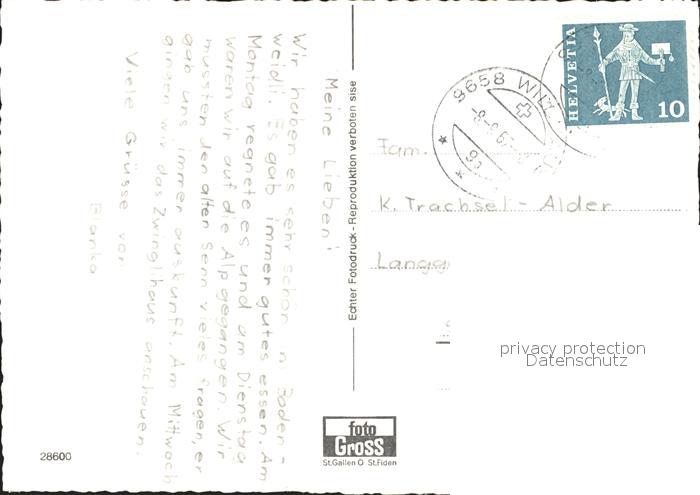 Meine Lieben!
Wir haben es sehr schön in Boden-
weidli. Es gab immer gutes essen. Am
Montag regnete es und am Dienstag
waren wir auf die Alp gegangen. Wir
mussten den alten Senn vieles fragen, er
gab uns immer auskunft. Am Mittwoch
gingen wir das Zwinglihaus anschauen.
Viele Grüsse von
Bianka
28600
Echter Fotodruck - Reproduktion verboten sise
foto
Gross
St.Gallen O St.Fiden
9658 WIL
HELVETIA
10
Fam.
K. Trachsel - Alder
Langg
privacy protection
Datenschutz